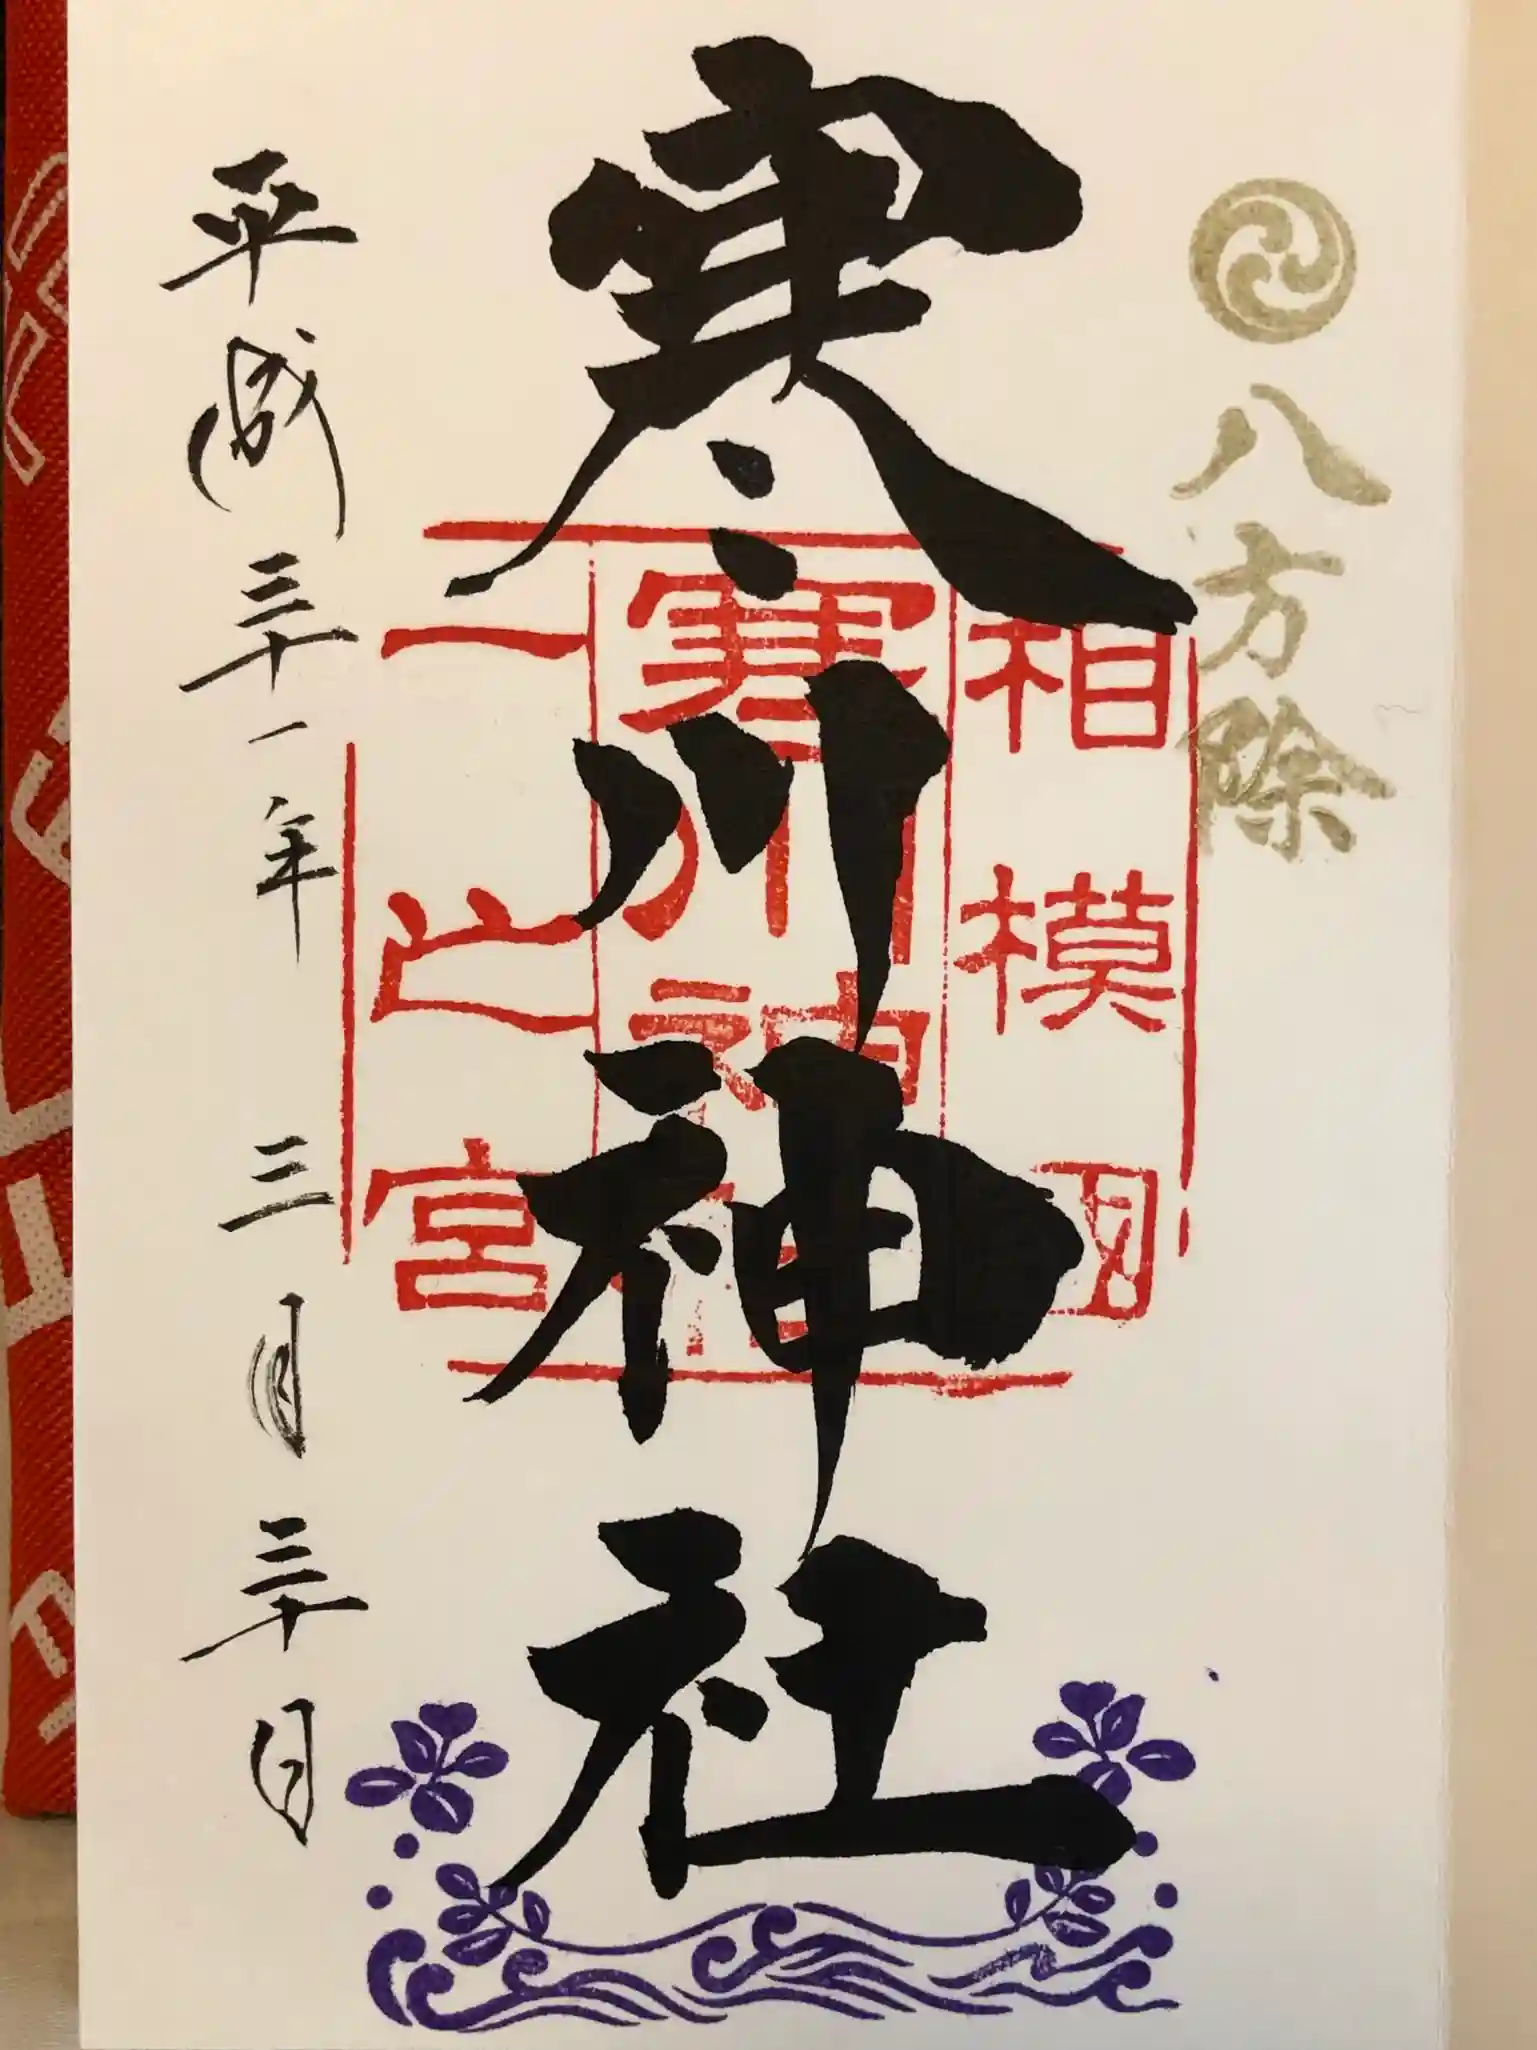 八方除
寒川神社
相模國
寒川神社
一之宮
平成三十一年三月三十日